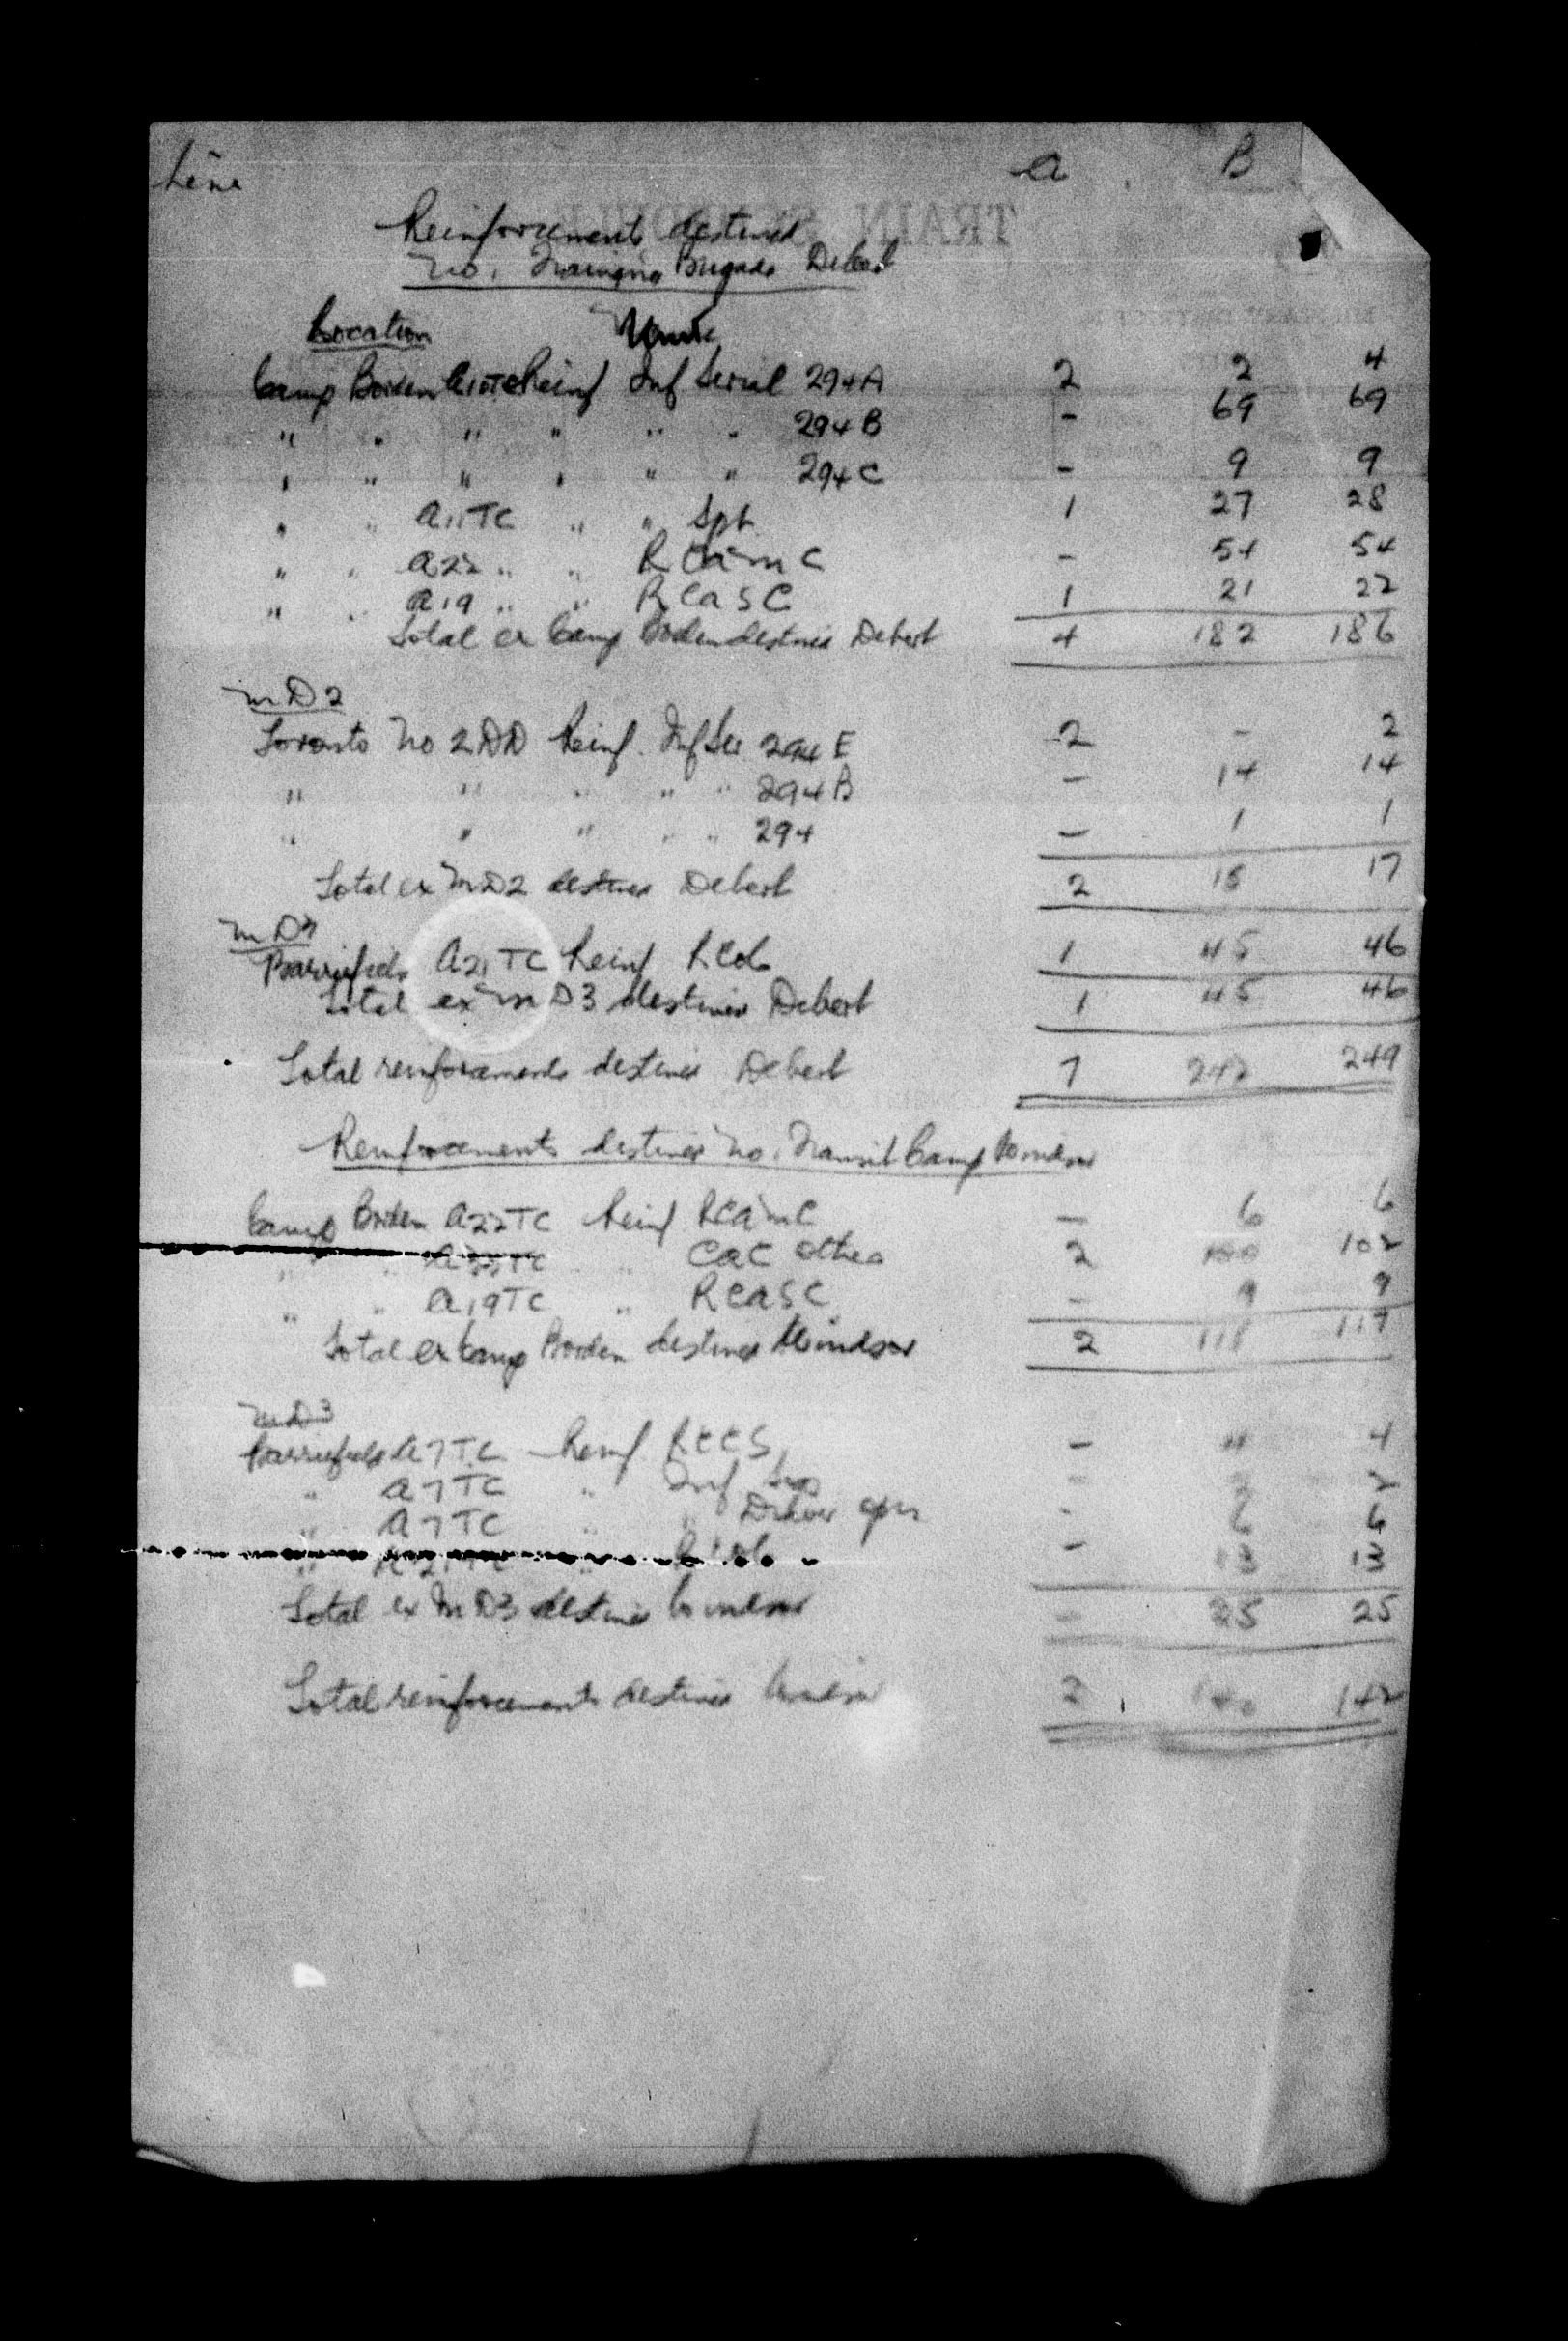 Line a B
Reinforcements destined
No. 1 Training Brigade Debert
Location Unit
Camp Borden A10TC Reinf Inf Serial 294A 2 2 4
" " " " " " 294B - 69 69
" " " " " " 294C - 9 9
" " A11TC " " Spt 1 27 28
" " A22 " " RCAMC - 54 54
" " A19 " " RCASC 1 21 22
Total ex Camp Borden destined Debert 4 182 186
MD2
Toronto No 2 DD Reinf. Inf Ser 294E 2 - 2
" " " " " 294B - 14 14
" " " " " 294 - 1 1
Total ex MD2 destined Debert 2 15 17
MD3
Barriefield A21TC Reinf RCOC 1 45 46
Total ex MD3 destined Debert 1 45 46
Total reinforcements destined Debert 7 242 249
Reinforcements destined No. 1 Transit Camp Windsor
Camp Borden A22TC Reinf RCAMC - 6 6
" " A33TC " CAC Other 2 100 102
" " A19TC " RCASC - 9 9
Total ex Camp Borden destined Windsor 2 115 117
MD3
Barriefield A7TC Reinf RCCS - 4 4
" A7TC " Inf Sigs - 2 2
" A7TC " " Driver oprs - 6 6
" A21TC " RCOC - 13 13
Total ex MD3 destined Windsor - 25 25
Total reinforcements destined Windsor 2 140 142